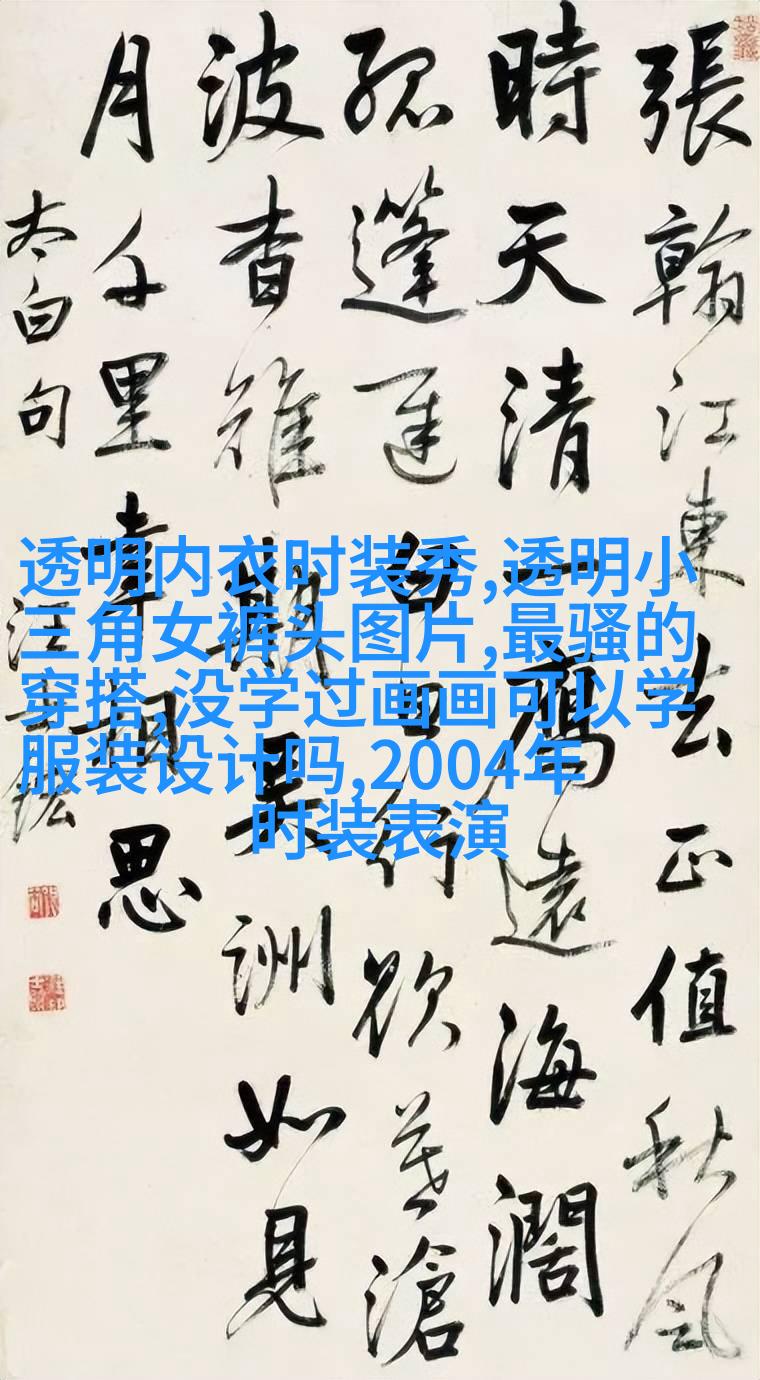 張翰江東去正值秋風
時天清一鴈遠海濶
孤蓬遲白日行欲暮滄
波杳難期吳洲如見
月千里幸相思
太白句
汪士鋐
透明内衣时装秀,透明小
三角女裤头图片,最骚的
穿搭,没学过画画可以学
服装设计吗,2004年
时装表演